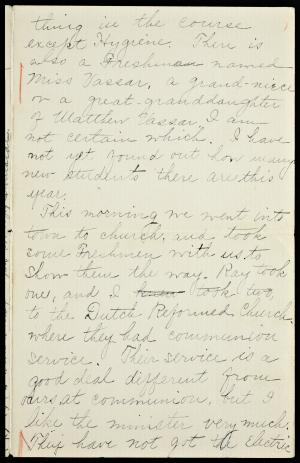 thing in the course
except Hygiene. There is
also a Freshman named
Miss Vassar, a grand-niece
or a great-granddaughter
of Matthew Vassar, I am
not certain which. I have
not yet found out how many
new students there are this
year.
This morning we went into
town to church, and took
some Freshmen with us to
show them the way. Ray took
one, and I took two,
to the Dutch Reformed Church,
where they had communion
service. Their service is a
good deal different from
ours at communion, but I
like the minister very much.
They have not got the Electric